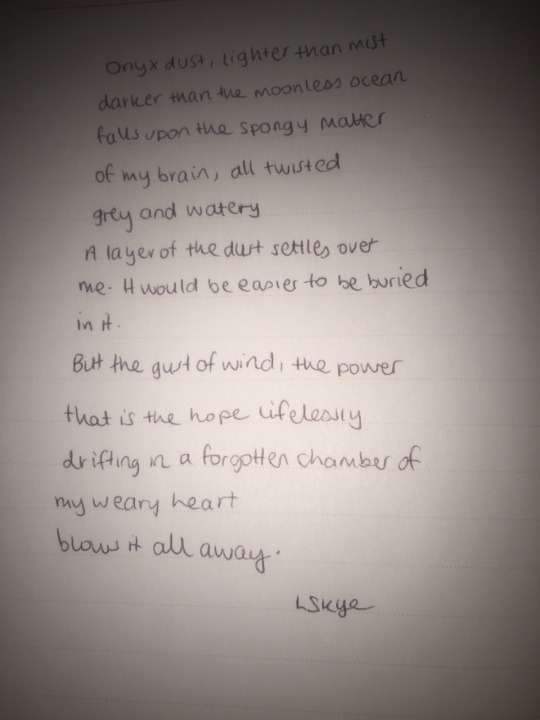 Onyx dust, lighter than mist
darker than the moonless ocean
falls upon the spongy matter
of my brain, all twisted
grey and watery
A layer of the dust settles over
me. It would be easier to be buried
in it.
But the gust of wind, the power
that is the hope lifelessly
drifting in a forgotten chamber of
my weary heart
blows it all away.
LSkye